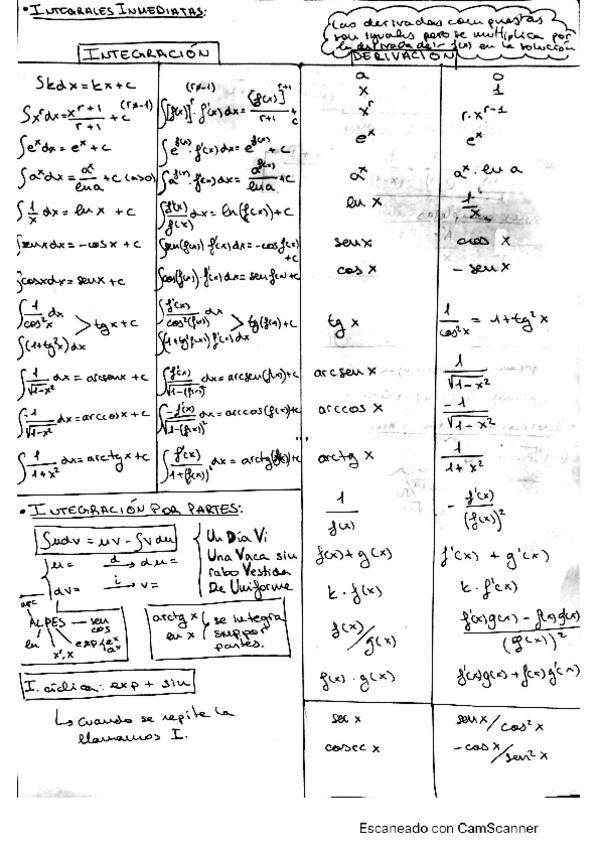 • INTEGRALES INMEDIATAS:
Las derivadas compuestas
son iguales pero se multiplica por
la derivada de f(x) en la solución
INTEGRACIÓN
∫kdx = kx + c
∫x^r dx = x^(r+1)/(r+1) + c (r≠-1)
∫e^x dx = e^x + c
∫a^x dx = a^x/ln a + c (a>0)
∫1/x dx = ln x + c
∫senx dx = -cos x + c
∫cosx dx = senx + c
∫1/cos²x dx
∫(1+tg²x) dx > tg x + c
∫1/√(1-x²) dx = arcsenx + c
∫-1/√(1-x²) dx = arccosx + c
∫1/(1+x²) dx = arctg x + c
(r≠-1)
∫[f(x)]^r · f'(x) dx = [f(x)]^(r+1)/(r+1) + c
∫e^f(x) · f'(x) dx = e^f(x) + c
∫a^f(x) · f'(x) dx = a^f(x)/ln a + c
∫f'(x)/f(x) dx = ln(f(x)) + c
∫sen(f(x)) · f'(x) dx = -cos f(x) + c
∫cos(f(x)) · f'(x) dx = sen f(x) + c
∫f'(x)/cos²(f(x)) dx
∫(1+tg²f(x)) f'(x) dx > tg(f(x)) + c
∫f'(x)/√(1-(f(x))²) dx = arcsen(f(x)) + c
∫-f'(x)/√(1-(f(x))²) dx = arccos(f(x)) + c
∫f'(x)/(1+(f(x))²) dx = arctg(f(x)) + c
DERIVACIÓN
a 0
x 1
x^r r·x^(r-1)
e^x e^x
a^x a^x · ln a
ln x 1/x
senx cos x
cos x - senx
tg x 1/cos²x = 1+tg²x
arcsen x 1/√(1-x²)
arccos x -1/√(1-x²)
arctg x 1/(1+x²)
1/f(x) - f'(x)/(f(x))²
f(x)+g(x) f'(x) + g'(x)
k · f(x) k · f'(x)
f(x)/g(x) f'(x)g(x) - f(x)g'(x)/(g(x))²
f(x) · g(x) f'(x)g(x) + f(x)g'(x)
sec x senx/cos²x
cosec x -cosx/sen²x
• INTEGRACIÓN POR PARTES:
∫udv = uv - ∫vdu
u = d → du =
dv = i → v =
Un Día Vi
Una Vaca sin
rabo Vestida
De Uniforme
arc
ALPES — sen
cos
ln x^r, x exp e^x
a^x
arctg x
ln x
se integra
por
partes.
I. cíclica: exp + sin
↳ cuando se repite la
llamamos I.
Escaneado con CamScanner